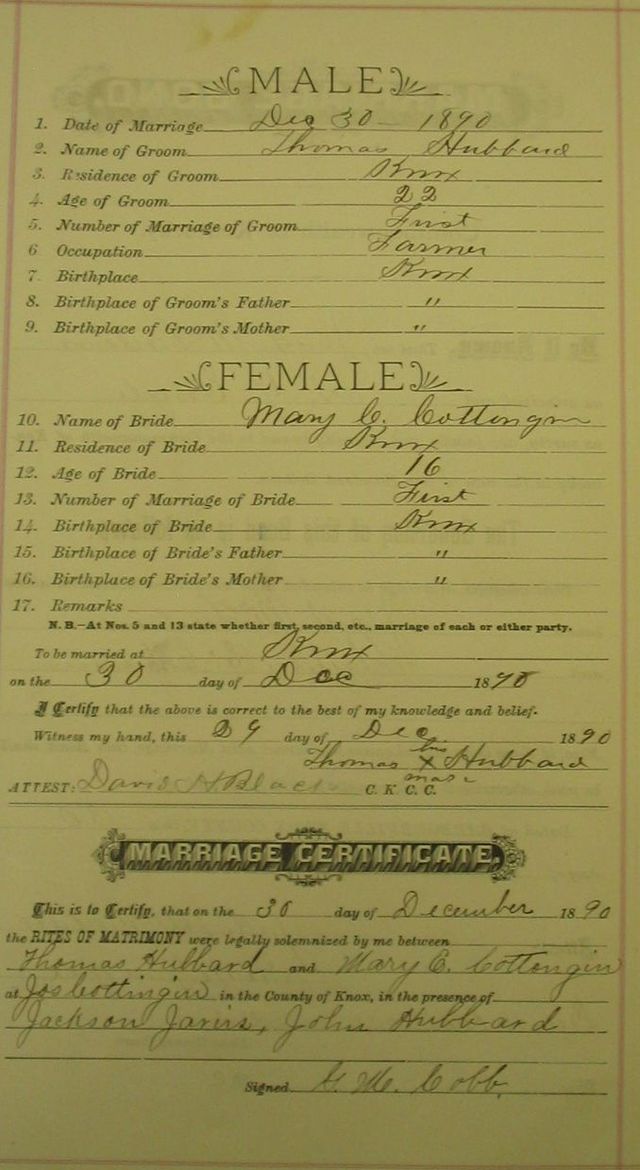 MALE
1. Date of Marriage Dec 30 1890
2. Name of Groom Thomas Hubbard
3. Residence of Groom Knox
4. Age of Groom 22
5. Number of Marriage of Groom First
6 Occupation Farmer
7. Birthplace Knox
8. Birthplace of Groom's Father "
9. Birthplace of Groom's Mother "
FEMALE
10. Name of Bride Mary C. Cottongin
11. Residence of Bride Knox
12. Age of Bride 16
13. Number of Marriage of Bride First
14. Birthplace of Bride Knox
15. Birthplace of Bride's Father "
16. Birthplace of Bride's Mother "
17. Remarks
N. B.—At Nos. 5 and 13 state whether first, second, etc., marriage of each or either party.
To be married at Knox
on the 30 day of Dec 1890
I Certify that the above is correct to the best of my knowledge and belief.
Witness my hand, this 29 day of Dec 1890
his
Thomas X Hubbard
mark
ATTEST: David H Black C. K. C. C.
MARRIAGE CERTIFICATE.
This is to Certify, that on the 30 day of December 1890
the RITES OF MATRIMONY were legally solemnized by me between
Thomas Hubbard and Mary E. Cottongin
at Jos Cottingin in the County of Knox, in the presence of
Jackson Jarvis, John Hubbard
Signed G. M. Cobb